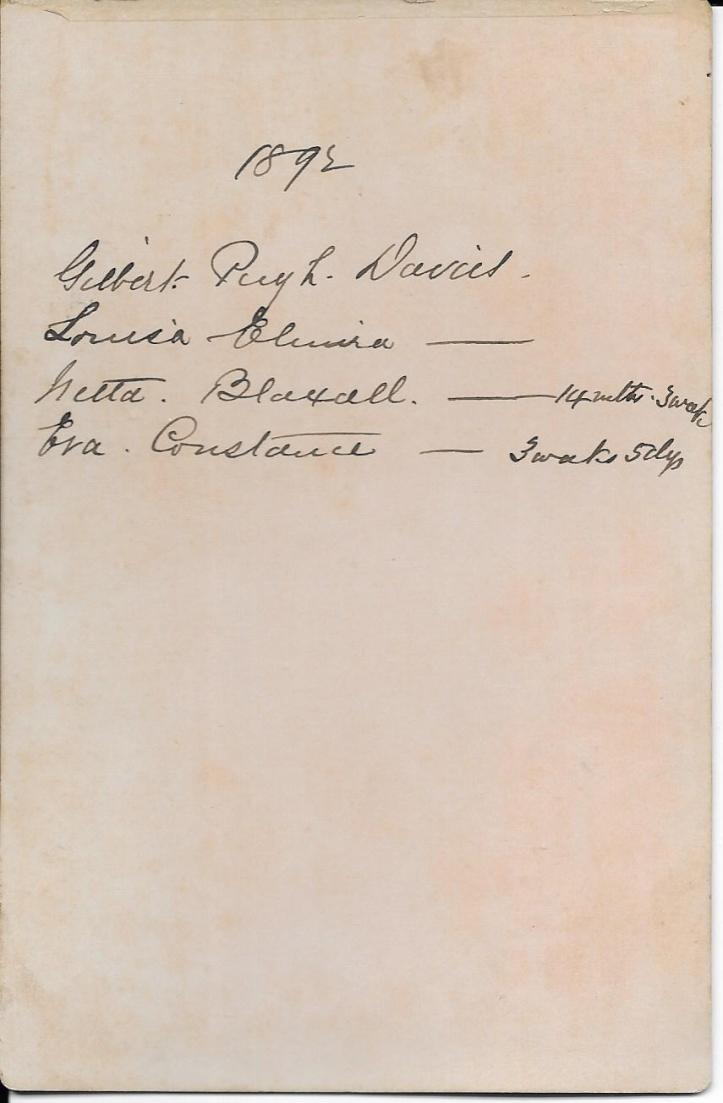 1892
Gilbert Pugh. Davies.
Louisa Elmira —
Netta. Blaxall. — 14 mths. 3 weeks
Eva. Constance — 3 weeks 5 dys